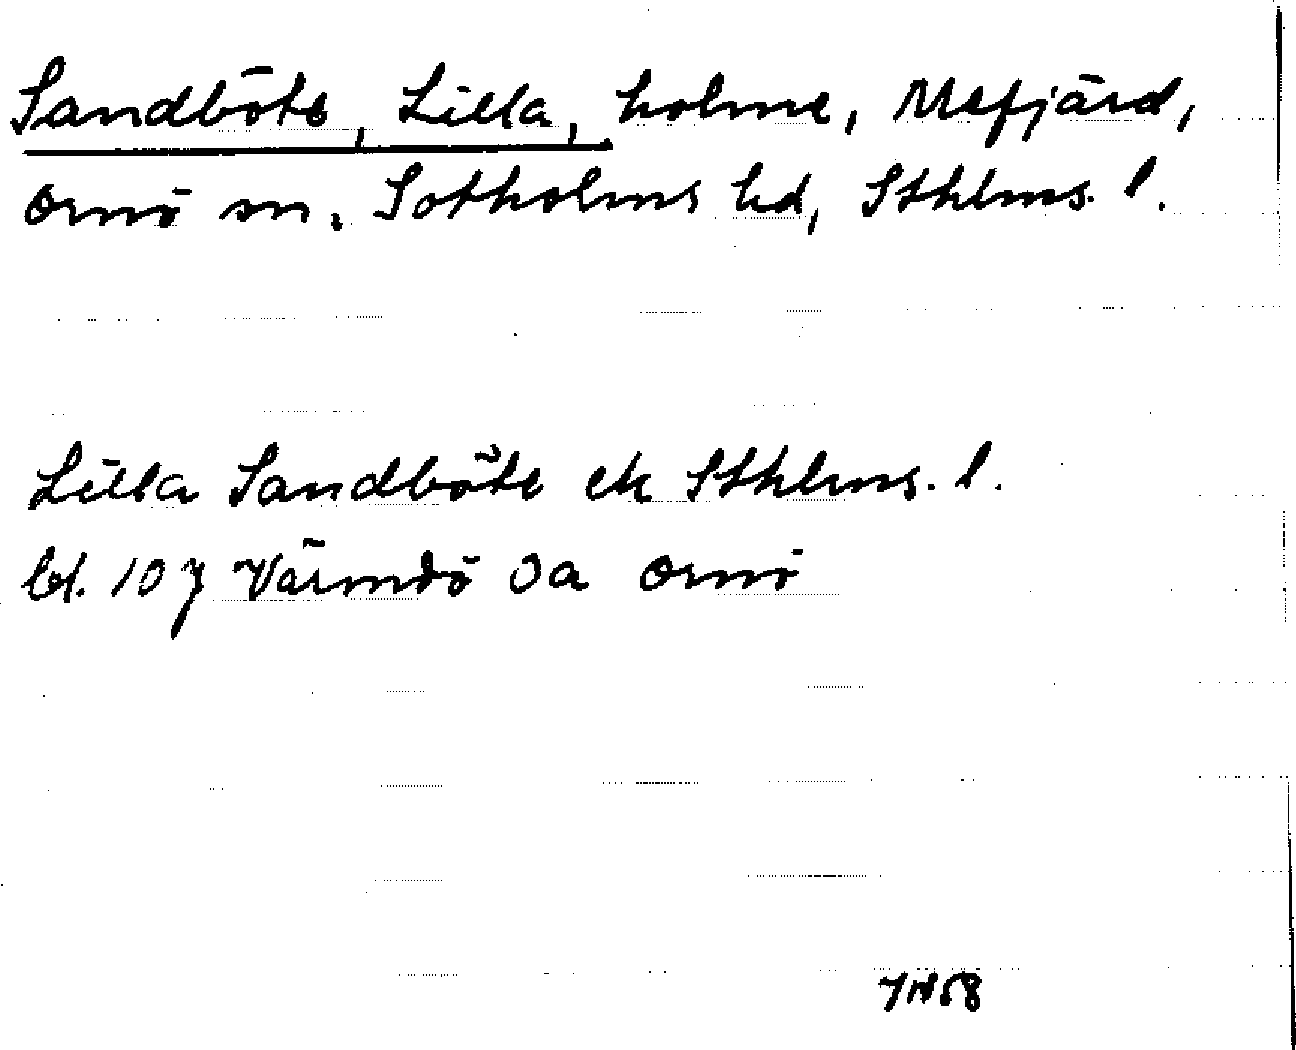 Sandböte, Lilla, holme, Mefjärd,
Ornö sn. Sotholms hd, Sthlms. l.
Lilla Sandböte ek Sthlms. l.
bl. 107 Värmdö Oa Ornö